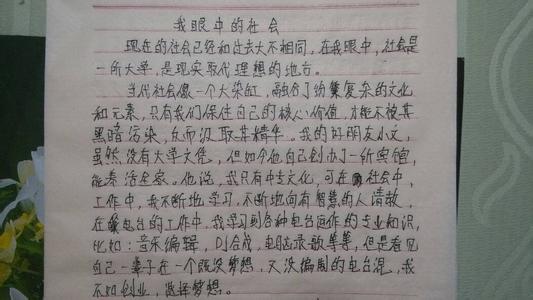 我眼中的社会
现在的社会已经和过去大不相同,在我眼中,社会是
一所大学,是现实取代理想的地方。
当代社会像一个大染缸,融合了纷繁复杂的文化
和元素,只有我们保住自己的核心价值,才能不被其
黑暗污染,反而汲取其精华。我的好朋友小文,
虽然没有大学文凭,但如今他自己创办了一所宾馆,
能养活全家。他说,我只有中专文化,可在社会中,
工作中,我不断地学习,不断地向有智慧的人请教,
在电台的工作中,我学习到各种电台运作的专业知识,
比如:音乐编辑,DJ合成,电脑录歌等等,但是看见
自己一辈子在一个既没梦想,又没编制的电台混,我
不如创业,选择梦想。